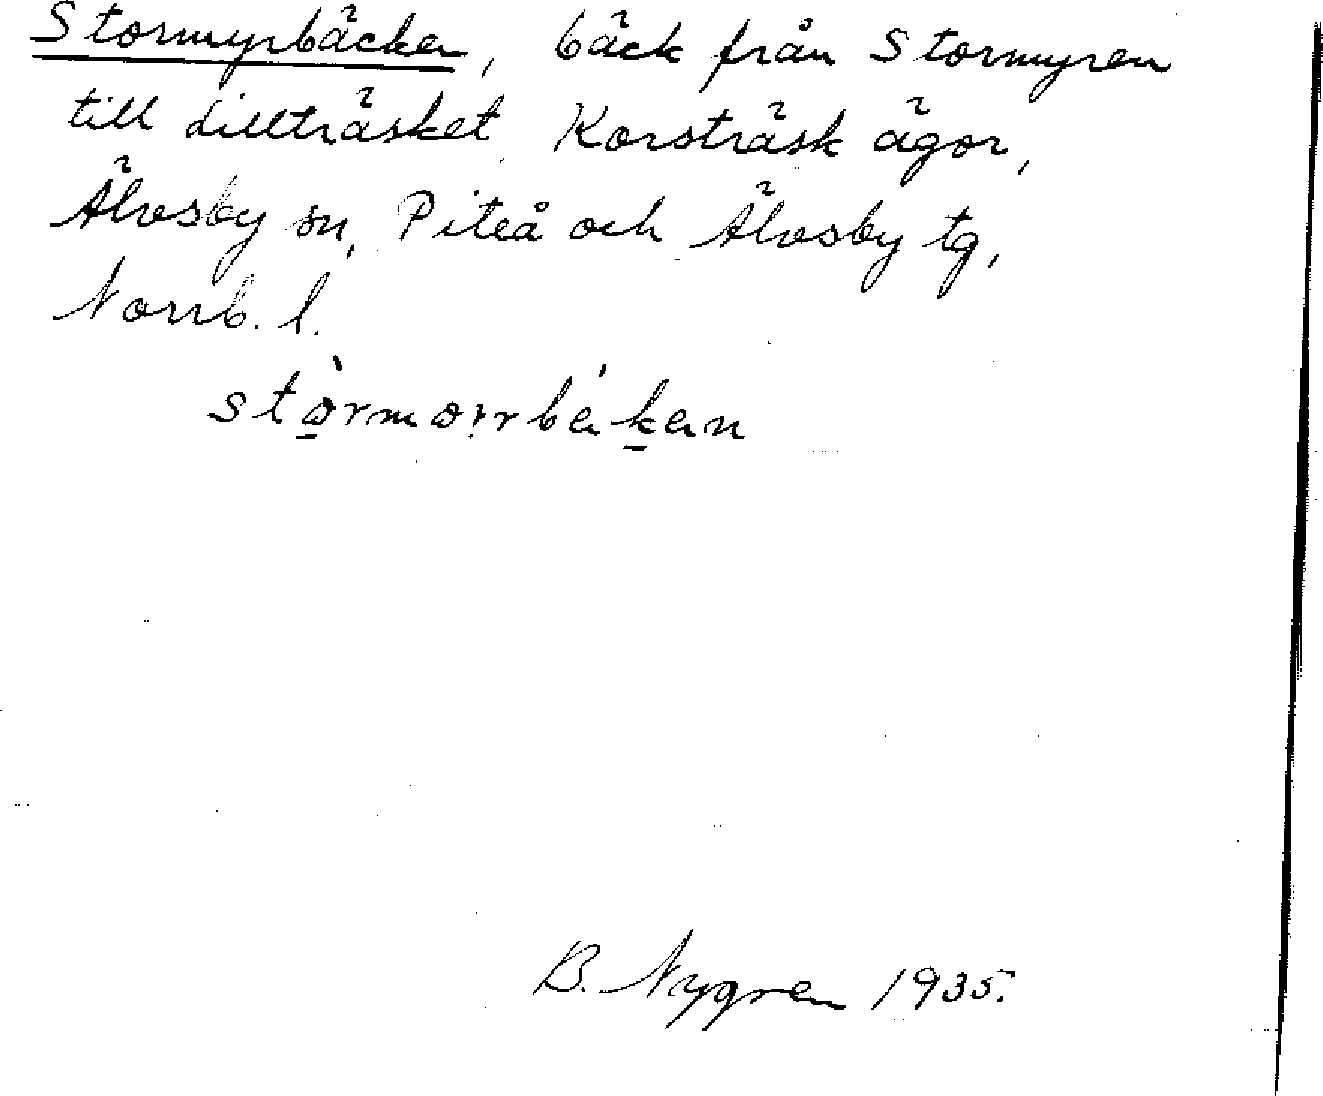 Stormyrbäcken, bäck från Stormyren
till Lillträsket Korsträsk ägor,
Älvsby sn, Piteå och Älvsby tg,
Norrb. l.
B. Nygren 1935.